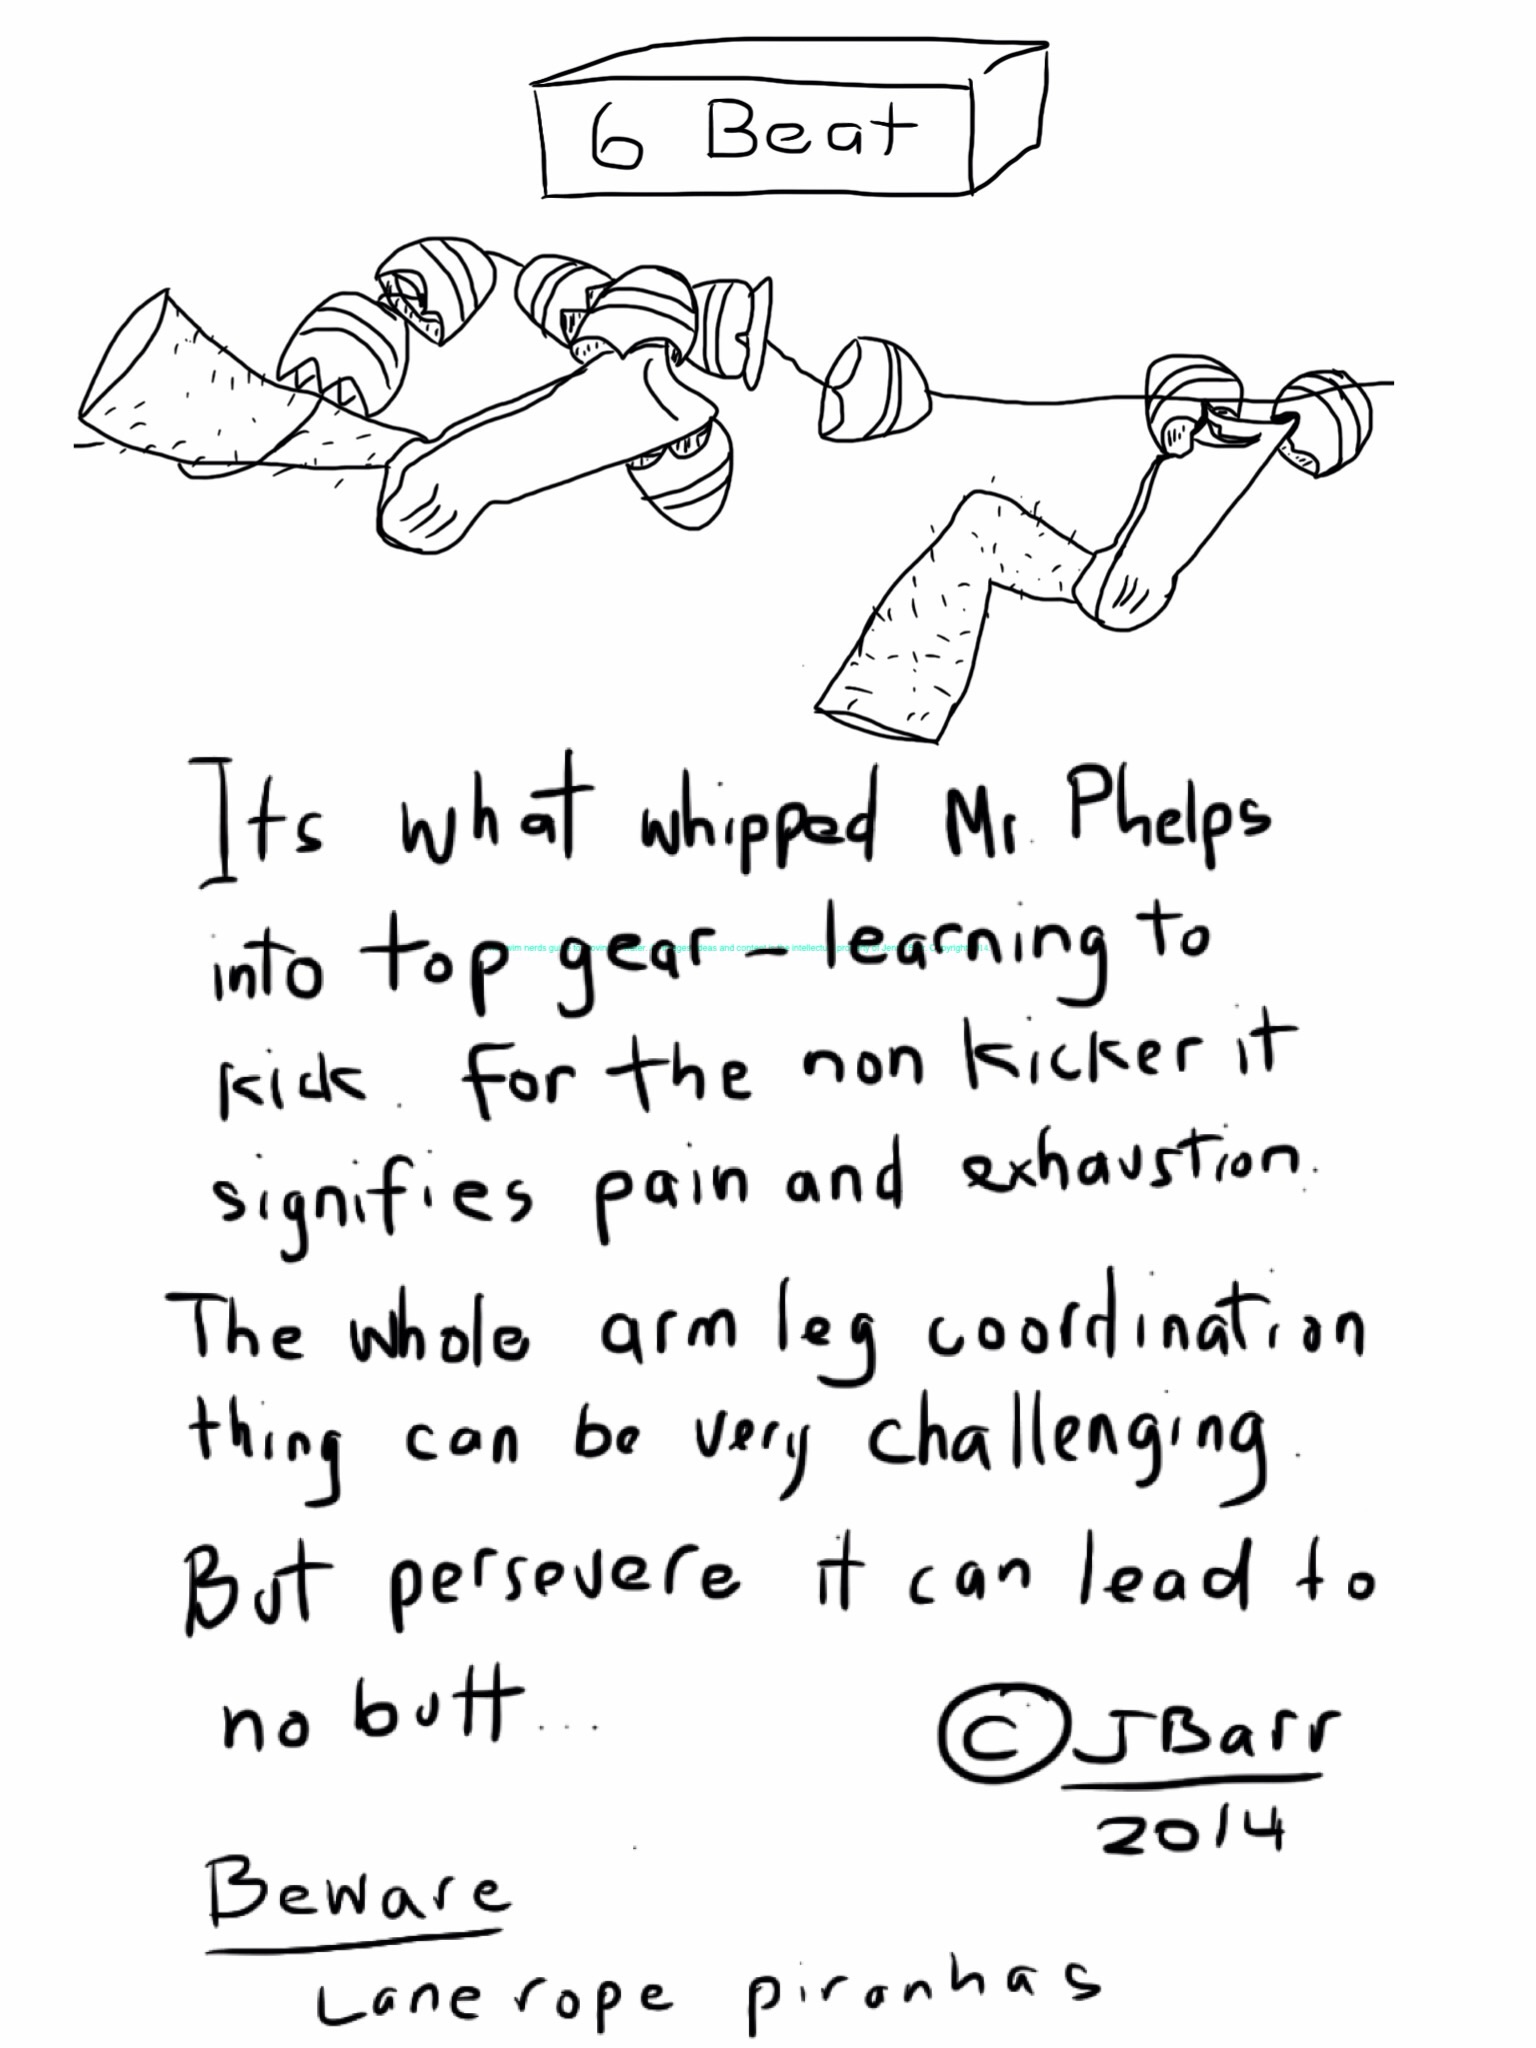 6 Beat
Its what whipped Mr. Phelps
into top gear – learning to
kick. For the non kicker it
signifies pain and exhaustion.
The whole arm leg coordination
thing can be very challenging.
But persevere it can lead to
no butt...
© JBarr
2014
Beware
Lane rope piranhas